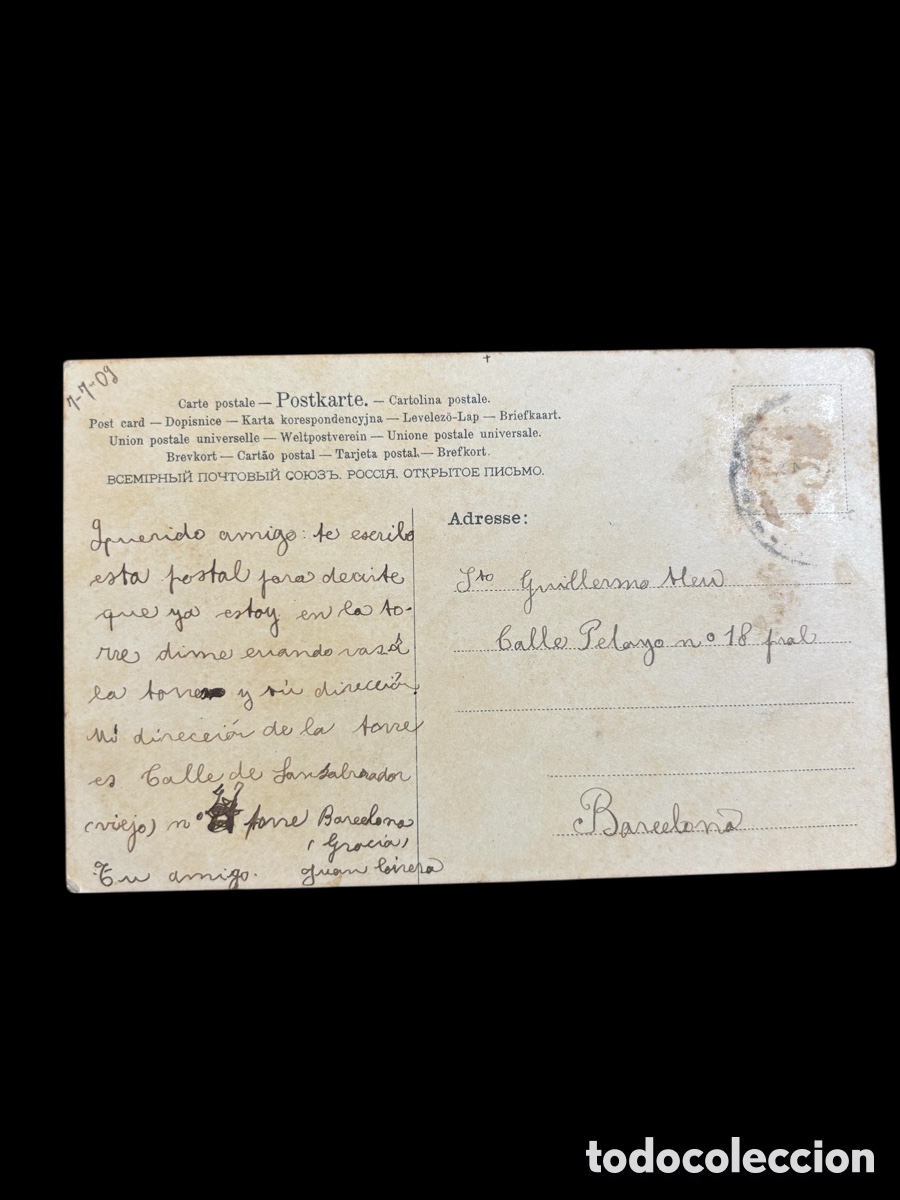 7-7-09
Carte postale — Postkarte. — Cartolina postale.
Post card — Dopisnice — Karta korespondencyjna — Levelező-Lap — Briefkaart.
Union postale universelle — Weltpostverein — Unione postale universale.
Brevkort — Cartão postal — Tarjeta postal. — Brefkort.
ВСЕМІРНЫЙ ПОЧТОВЫЙ СОЮЗЪ. РОССІЯ. ОТКРЫТОЕ ПИСЬМО.
Querido amigo: te escribo
esta postal para decirte
que ya estoy en la to-
rre dime cuando vas á
la torre y tú dirección
Mi dirección de la torre
es Calle de
(viejo) nº torre Barcelona
(Gracia)
Tu amigo. Juan
Adresse:
Sto Guillermo
Calle Pelayo nº 18 pral
Barcelona
todocoleccion